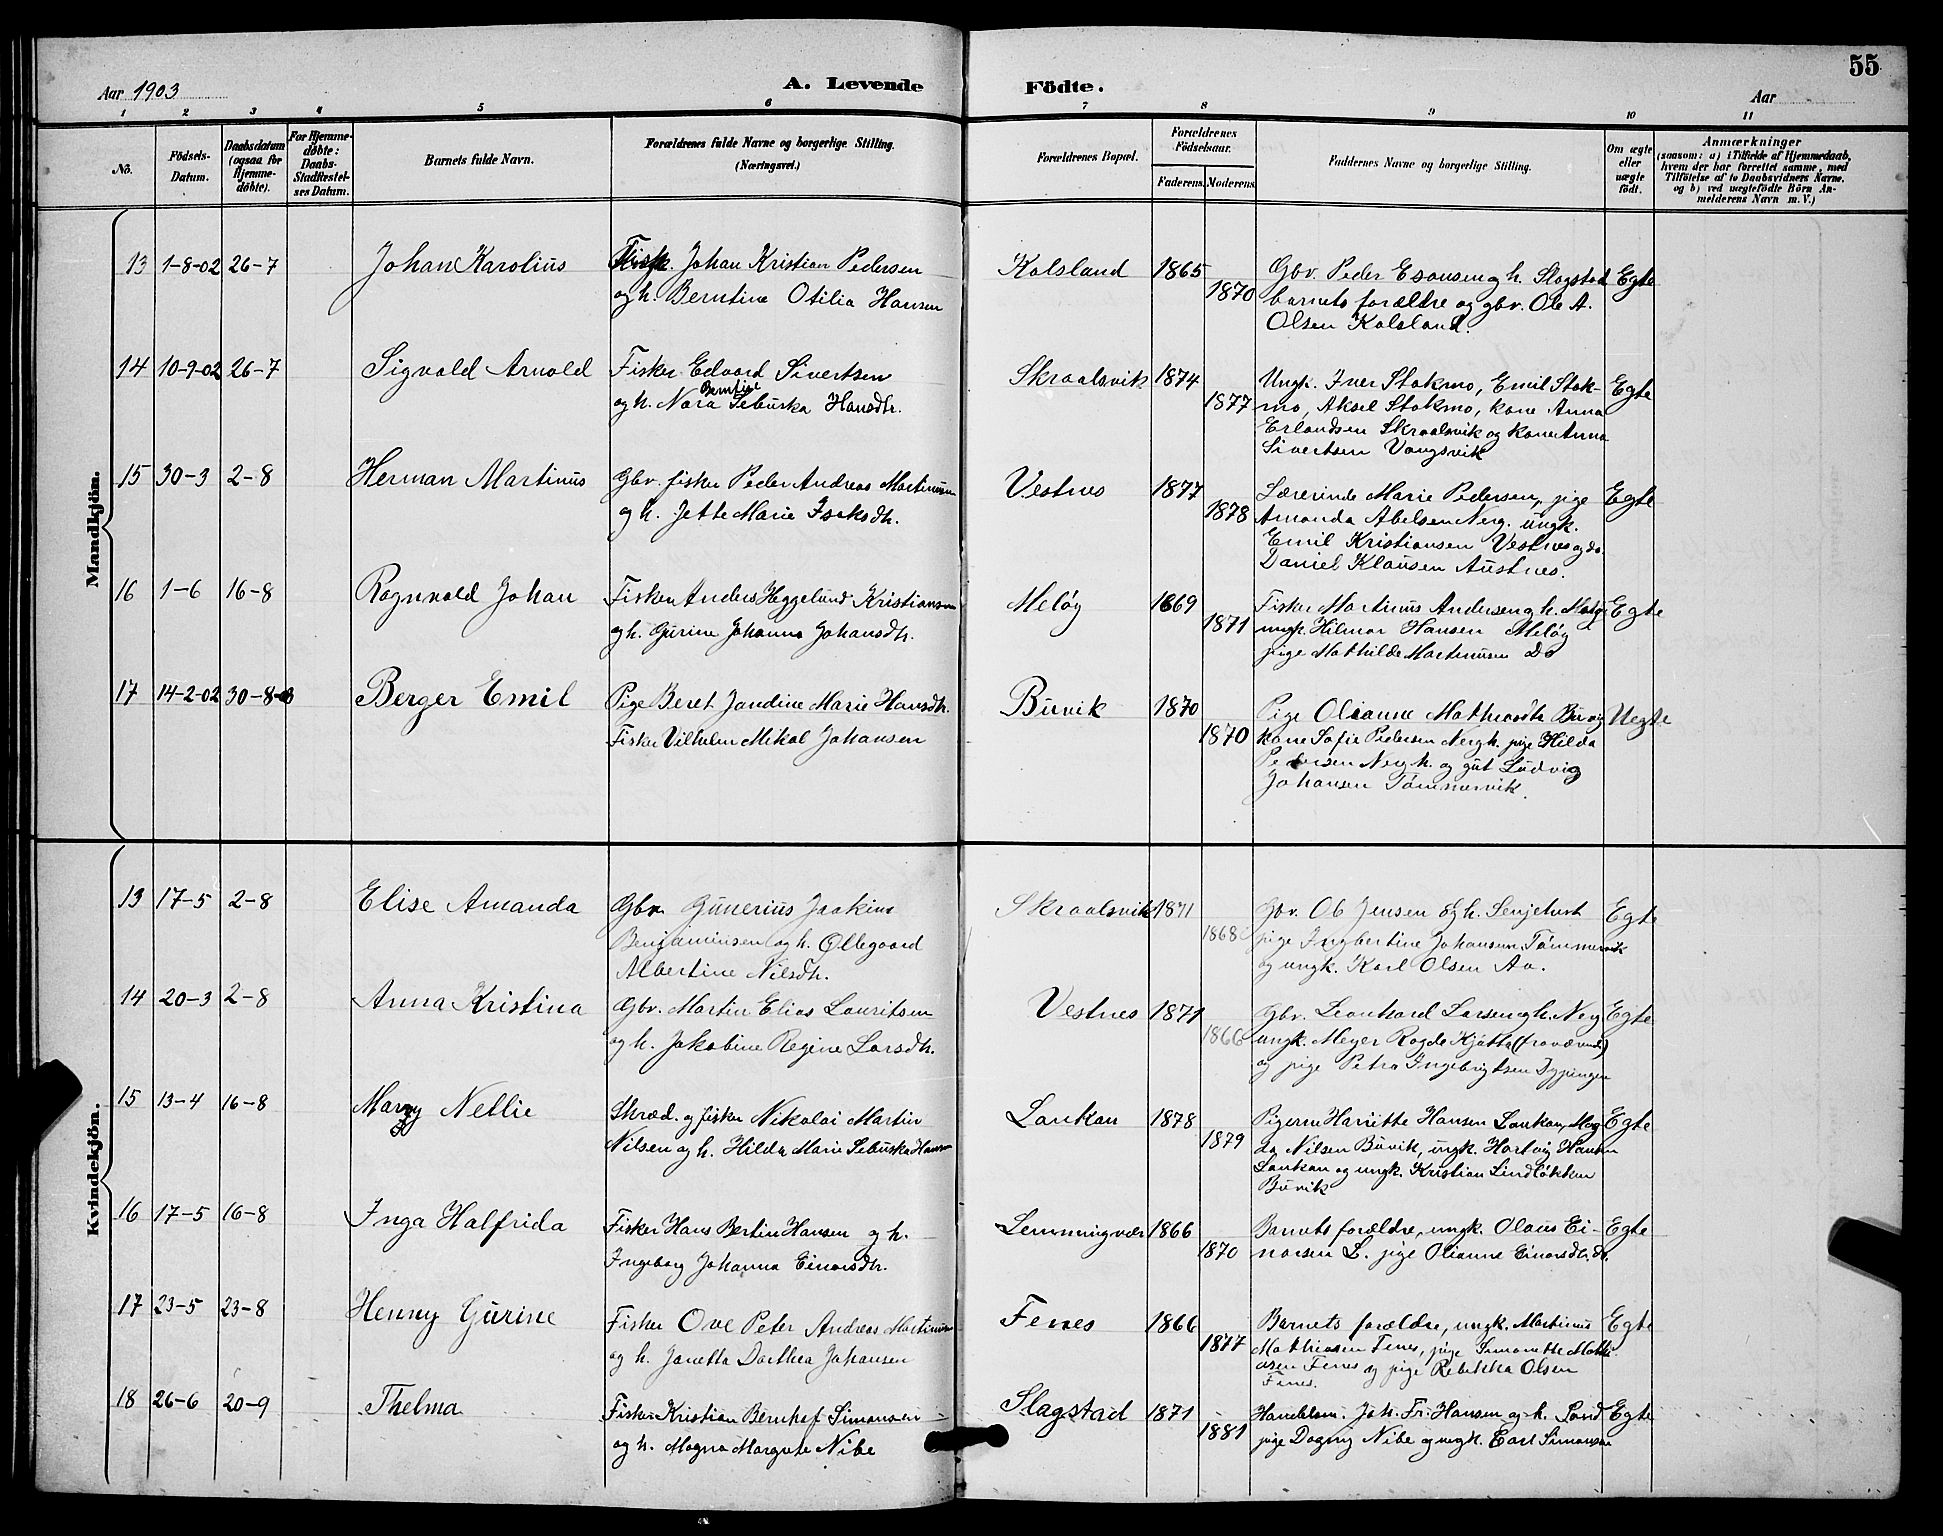 55
Aar 1903
A. Levende
Födte.
Aar
1 2 3 4 5 6 7 8 9 10 11
No.
Födsels-
Datum.
Daabsdatum
(ogsaa for
Hjemme-
døbte).
For Hjemme-
døbte:
Daabs-
Stadfæstel-
ses Datum.
Barnets fulde Navn.
Forældrenes fulde Navne og borgerlige Stilling.
(Næringsvei.)
Forældrenes Bopæl.
Forældrenes
Födselsaar.
Faderens. Moderens.
Faddernes Navne og borgerlige Stilling.
Om ægte
eller
uægte
født.
Anmærkninger
(saasom: a) i Tilfælde af Hjemmedaab,
hvem der har forrettet samme, med
Tilföielse af to Daabsvidners Navne,
og b) ved uægtefödte Börn An-
melderens Navn m. V.)
Mandkjön.
13 1-8-02 26-7 Johan Karolius
Fisk. Johan Kristian Pedersen
og h. Berntine Otilia Hansen
Kalsland 1865
1870
Gbr. Peder Esansen og h. Slagstad
barnets forældre og gbr. Ole A.
Olsen Kalsland.
Egte
14 10-9-02 26-7 Sigvald Arnold
Fisker Edvard Sivertsen
Berntine
og h. Nora Sebuska Hansdtr.
Skraalsvik 1874
1877
Ungk. Iver Stokmo, Emil Stok-
mo, Aksel Stokmo, kone Anna
Erlandsen Skraalsvik og kone Anna
Sivertsen Vangsvik
Egte
15 30-3 2-8 Herman Martinus
Gbr. fisker Peder Andreas Martinusen
og h. Jette Marie Isaksdtr.
Vestnes 1877
1878
Lærerinde Marie Pedersen, pige
Amanda Abelsen Nerg. ungk.
Emil Kristiansen Vestnes og do.
Daniel Klausen Austnes.
Egte
16 1-6 16-8 Ragnvald Johan
Fisker Anders Heggelund Kristiansen
og h. Gurine Johanna Johansdtr.
Meløy 1869
1871
Fisker Martinus Andersen og h.
ungk. Hilmar Hansen Meløy
pige Mathilde Martinusen Do
Egte
17 14-2-02 30-8-03 Berger Emil
Pige Beret Jandine Marie Hansdtr.
Fisker Vilhelm Mikal Johansen
Buvik 1870
1870
Pige Olianne
kone Sofie Pedersen Nergh. pige Hilda
Pedersen Nergh. og gut Ludvig
Johansen Tömmervik.
Uegte
Kvindekjön.
13 17-5 2-8 Elise Amanda
Gbr. Gunerius Joakim
Benjaminsen og h. Ollegaard
Albertine Nilsdtr.
Skraalsvik 1871
1868
Gbr. Ob Jensen og h. Senjehest
pige Ingbertine Johansen Tömmervik
og ungk. Karl Olsen Aa.
Egte
14 20-3 2-8 Anna Kristina
Gbr. Martin Elias Lauritsen
og h. Jakobine Regine Larsdtr.
Vestnes 1871
1866
Gbr. Leonhard Larsen og h. Nerg
ungk. Meyer Rogde Kjötta (fraværende)
og pige Petra Ingebrigtsen
Egte
15 13-4 16-8 Mary Nellie
Skræd. og fisker Nikolai Martin
Nilsen og h. Hilda Marie Sebuska Hansen
Laukan 1878
1879
Pigerne Hariette Hansen Laukan, Mag-
da Nilsen Buvik, ungk. Hartvig Hansen
Laukan og ungk. Kristian Lindløkken
Buvik
Egte
16 17-5 16-8 Inga Halfrida
Fisker Hans Bertin Hansen og h.
Ingeborg Johanna Einarsdtr.
Lemmingvær 1866
1870
Barnets forældre, ungk. Olaus Ei-
narsen L. pige Olianne Einarsdtr. do.
Egte
17 23-5 23-8 Henny Gurine
Fisker Ove Peter Andreas Martinusen
og h. Janetta Dorthea Johansen
Fenes 1866
1877
Barnets forældre, ungk. Martinus
Mathiasen Fenes, pige Simonette Mathi-
asen Fenes og pige Rebekka Olsen
Fenes.
Egte
18 26-6 20-9 Thelma
Fisker Kristian Bernhof Simonsen
og h. Magna Margrete Nibe
Slagstad 1871
1881
Handelsm. Joh. Fr. Hansen og h. Sand
pige Dagny Nibe og ungk. Earl Simonsen
Egte